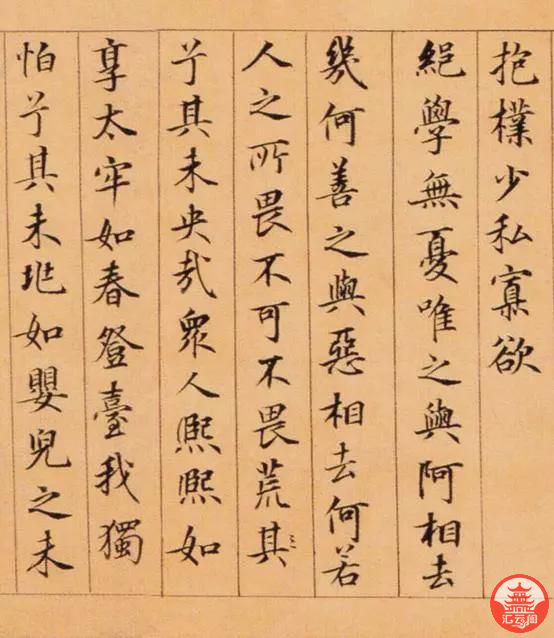 抱樸少私寡欲
絕學無憂唯之與阿相去
幾何善之與惡相去何若
人之所畏不可不畏荒其
兮其未央哉衆人熙熙如
享太牢如春登臺我獨
怕兮其未兆如嬰兒之未